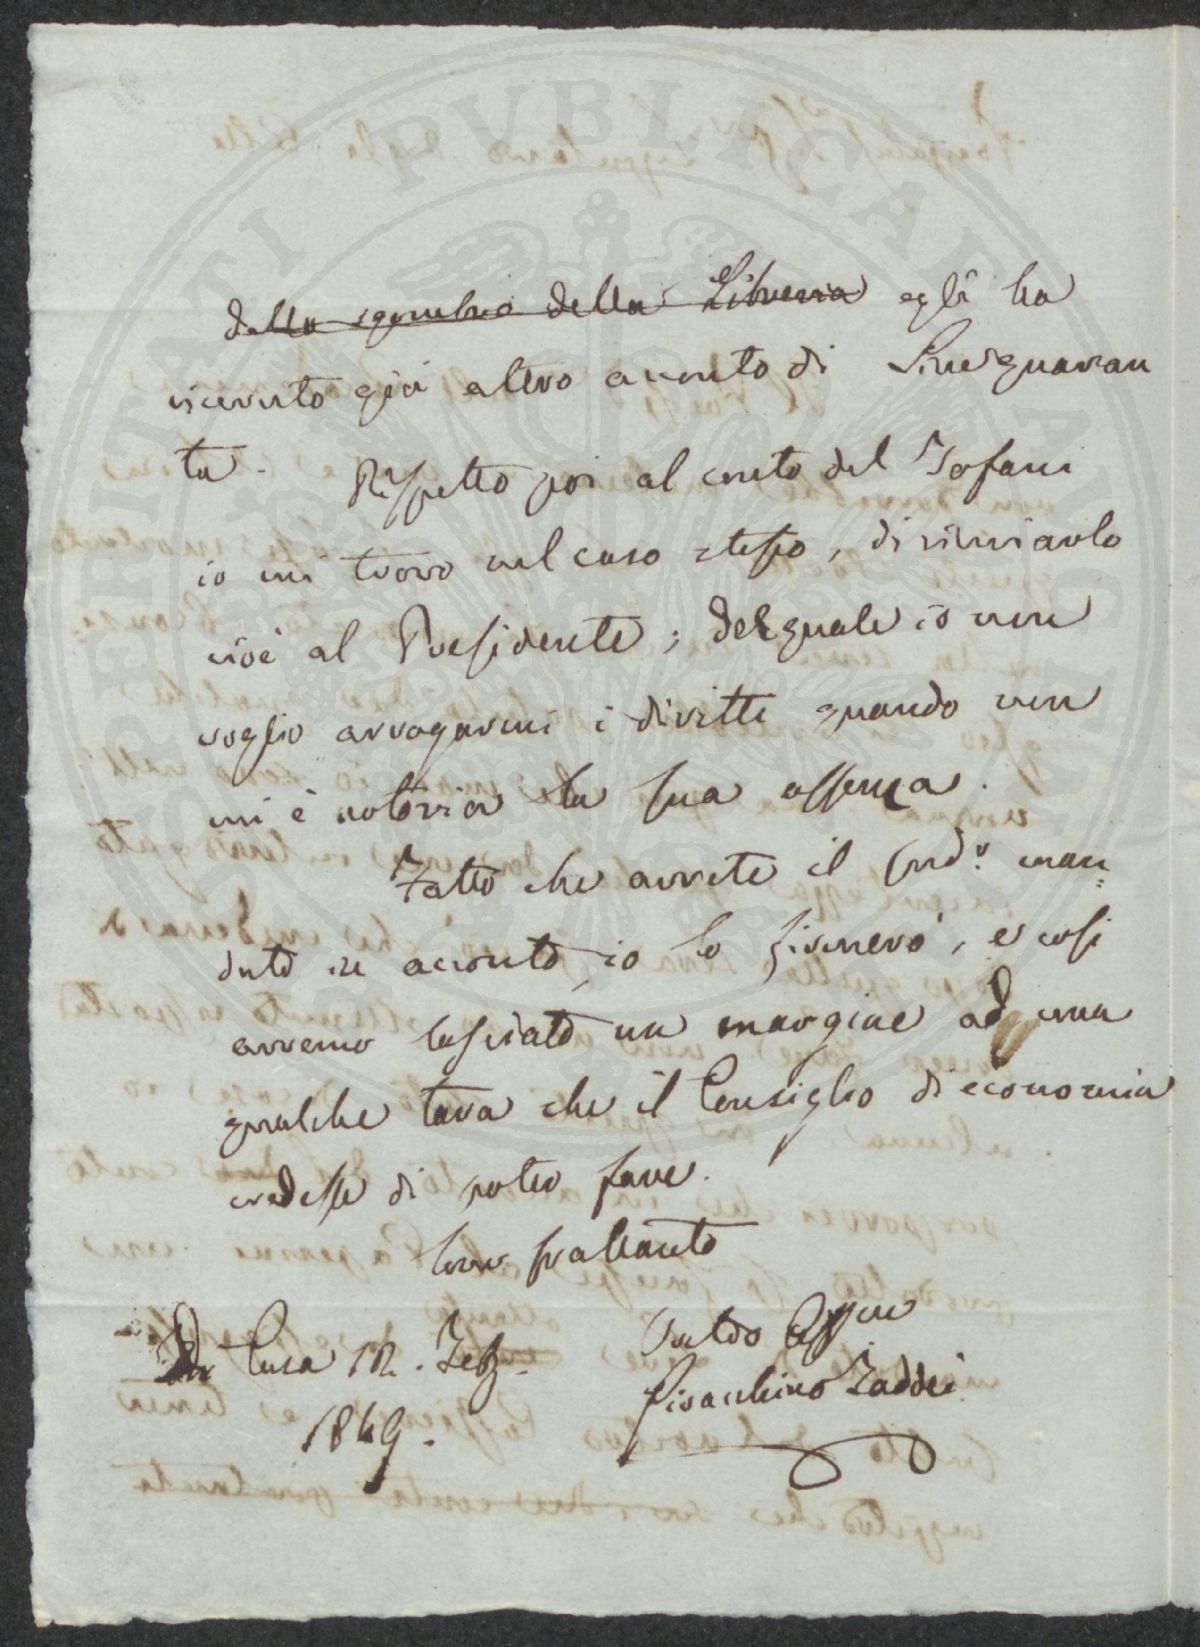 dello sgombro della Libreria egli ha
ricevuto già altro acconto di Lire quaran
ta. Rispetto poi al conto del Tofani
io mi trovo nel caso stesso, di rinviarlo
cioè al Presidente; del quale io non
voglio arrogarmi i diritti quando non
mi è notoria la sua assenza.
Fatto che avrete il sud.º man=
dato in acconto, io lo firmerò, e così
avremo lasciato un margine ad una
qualche tara che il Consiglio di economia
credesse di poter fare.
Sono frattanto
Di Casa 12. Feb.
1849.
Gioacchino Taddei
PUBLICAE